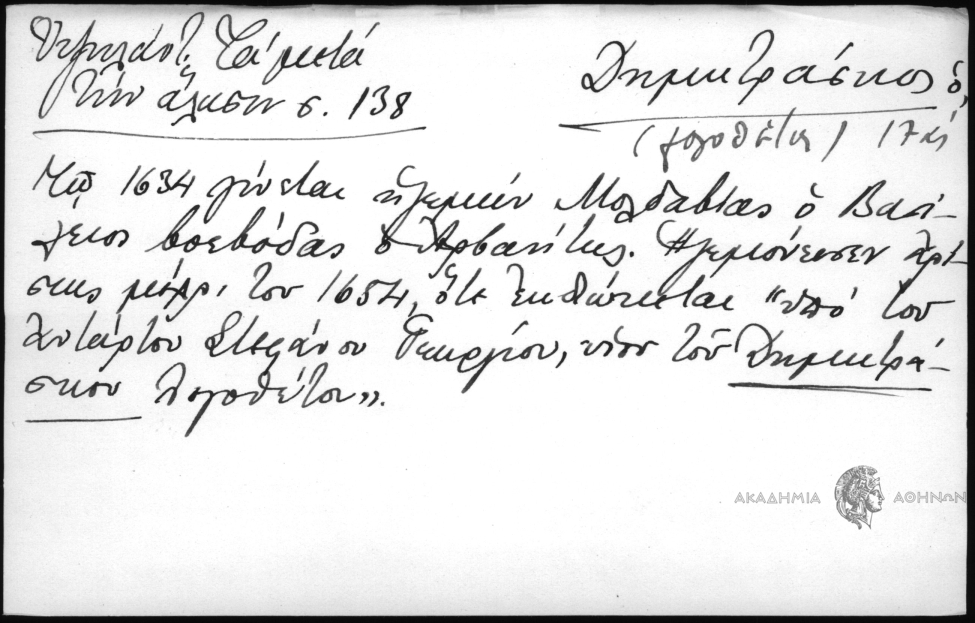 Υψηλάντ. Τά μετά
τήν άλωσιν σ. 138
Δημητράσκος ὁ,
(λογοθέτης) 17 αἰ
Τῷ 1634 γίνεται ἡγεμών Μολδαβίας ὁ Βασί-
λειος βοεβόδας ὁ Ἀρβανίτης. Ἡγεμόνευσεν
μέχρι του 1654, ὅτε ἐκθώκεται "ὑπό του
ἀντάρτου Στεφάνου Γεωργίου, υἱοῦ τοῦ Δημητρά-
σκου λογοθέτου».
ΑΚΑΔΗΜΙΑ ΑΘΗΝΩΝ